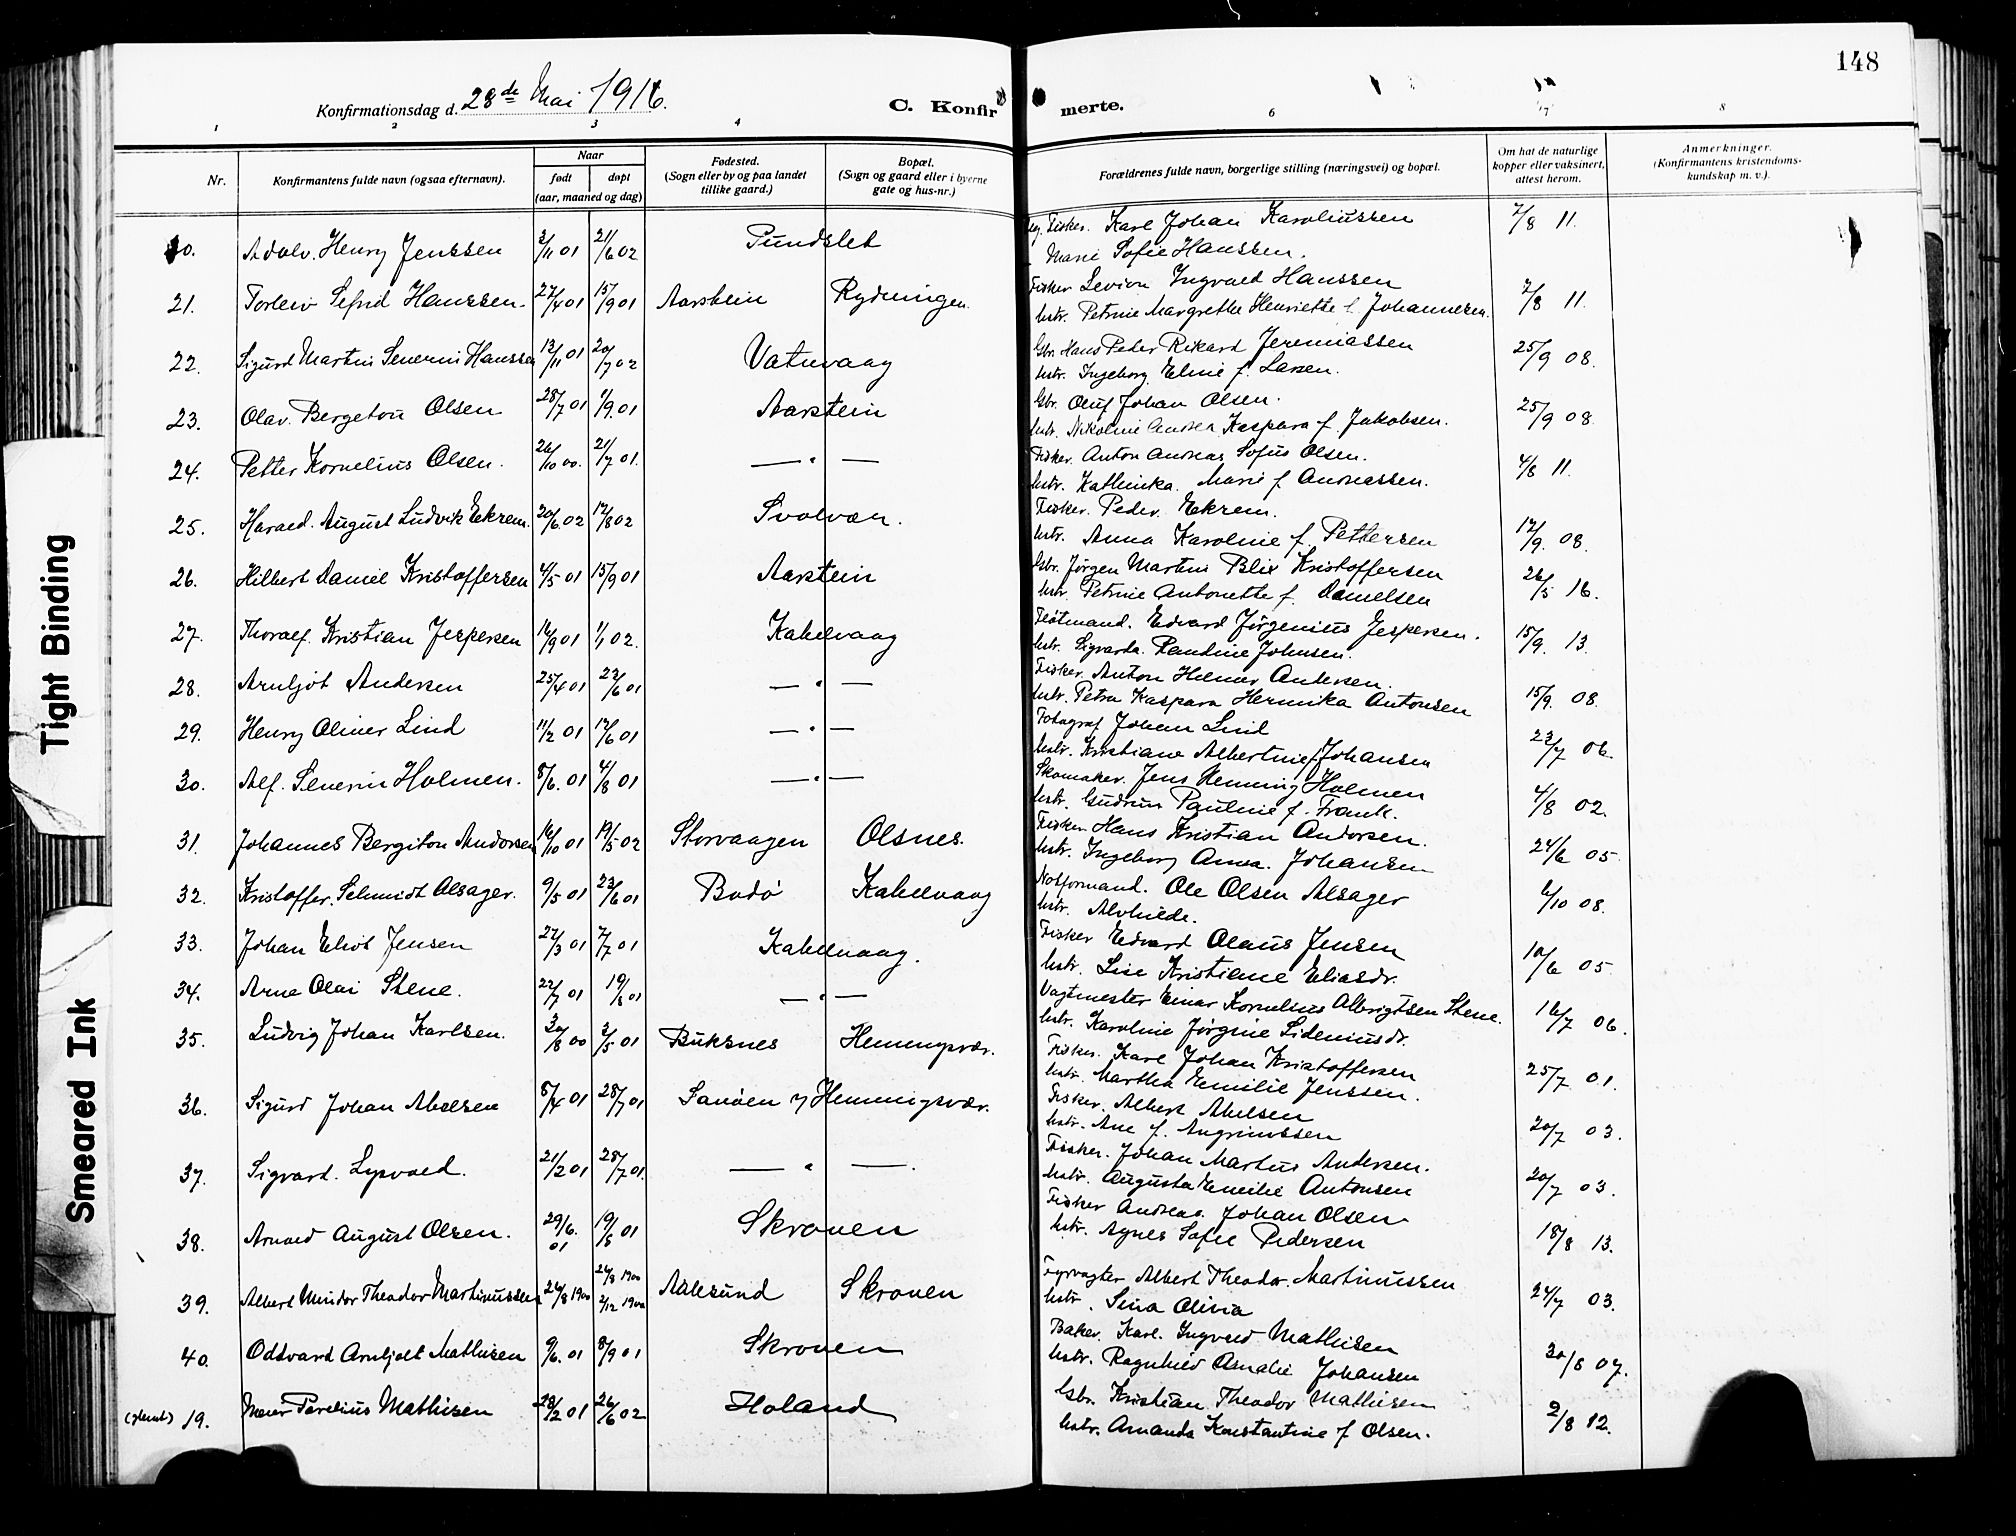 148
Konfirmationsdag d. 28de Mai 1916.
C. Konfirmerte.
1 2 3 4 6 7 8
Nr.
Konfirmantens fulde navn (ogsaa efternavn).
Naar
født
døpt
(aar, maaned og dag)
Fødested.
(Sogn eller by og paa landet
tillike gaard.)
Bopæl.
(Sogn og gaard eller i byerne
gate og hus-nr.)
Forældrenes fulde navn, borgerlige stilling (næringsvei) og bopæl.
Om hat de naturlige
kopper eller vaksinert,
attest herom.
Anmerkninger.
(Konfirmantens kristendoms-
kundskap m. v.).
20. Adolv. Henry Jenssen 3/11 01 21/6 02 Pundslet Fisker. Karl Johan Karoliussen 7/8 11.
Marie Sofie Hanssen.
21. Torleiv Sefrid Hanssen. 27/4 01 15/9 01 Aarstein Rydningen. Fisker Levion Ingvald Hanssen 7/8 11.
Hstr. Petrine Margrethe Henriette f. Johannesen.
22. Sigurd Martin Severin Hanssen 13/11 01 20/7 02 Vatnvaag Gbr. Hans Peder Rikard Jeremiassen 25/9 08.
Hstr. Ingeborg Eline f. Larsen.
23. Olav. Bergeton Olsen 28/7 01 1/9 01 Aarstein Gbr. Oluf Johan Olsen. 25/9 08
Hstr. Nikoline Andrea Kaspara f. Jakobsen.
24. Petter Kornelius Olsen. 26/10 00. 21/7 01. — " — Fisker. Anton Andreas Sofus Olsen. 4/8 11.
Hstr. Kathinka. Marie f. Andreassen.
25. Harald. August Ludvik Ekrem. 20/6 02 17/8 02 Svolvær. Fisker. Peder. Ekrem. 17/9. 08.
Hstr. Anna Karoline f. Pettersen
26. Hilbert Daniel Kristoffersen 4/5 01 15/9 01 Aarstein Gbr. Jørgen Martin Blix Kristoffersen 26/5 16.
Hstr. Petrine Antonette f. Danielsen
27. Thoralf. Kristian Jespersen 16/9 01 1/1 02. Kabelvaag Fløtmand. Edvard Jørgenius Jespersen. 15/9. 13.
Hstr. Sigvarda. Pauline Johnsen.
28. Arnljot Andersen 25/4 01 23/6 01 — " — Fisker. Anton Helmer Andersen. 15/9. 08.
Hstr. Petra Kaspara Hermika Antonsen
29. Henry Oliver Lind 11/2 01 17/6 01 — " — Fotograf Johan Lind 23/7 06.
Hstr. Kristiane Albertine f. Johansen
30. Alf. Severin Holmen. 8/6. 01 4/8 01 — " — Skomaker. Jens Henning Holmen 4/8 02.
Hstr. Gudrun Pauline f. Frank.
31. Johannes Bergiton Andorsen 16/10 01 19/5 02 Storvaagen Olsnes. Fisker Hans Kristian Andorsen. 24/6 05.
Hstr. Ingeborg Anna. Johansen
32. Kristoffer. Schmidt Alsager. 9/5 01 23/6 01 Bodø Kabelvaag Notformand. Ole Olsen Alsager 6/10 08.
Hstr. Alvhilde.
33. Johan Eliot Jensen 27/3 01 7/7 01 Kabelvaag. Fisker Edvard Olaus Jensen 10/6 05.
Hstr. Lise Kristiane Eliasdr.
34. Arne Olai Stene. 22/7 01 19/8 01 — " — Vagtmester Einar Kornelius Albrigtsen Stene. 16/7 06.
Hstr. Karoline Jørgine Sideniusdr.
35. Ludvig Johan Karlsen. 30/8 00 3/5 01 Buksnes Henningsvær. Fisker. Karl Johan Kristoffersen 25/7 01.
Hstr. Martha Emilie Jenssen.
36. Sigurd Johan Abelsen 8/4 01 28/7 01 Sanøen y Henningsvær. Fisker. Albert Abelsen 20/7 03.
Hstr. Ane f. Angrimssen
37. Sigvard. Lysvold. 21/2 01 28/7 01. — " —. Fisker. Johan Martus Andersen. 20/7 03.
Hstr. Augusta Emilie Antonsen
38. Arnold August Olsen. 29/6. 01 19/8 01 Skroven Fisker Andreas. Johan Olsen 18/8 13.
Hstr. Agnes Sofie Pedersen
39. Albert Mindor Theodor Martinussen 26/8 1900 26/8 1900 2/12 1900 Aalesund Skroven Fyrvogter Albert Theodor. Martinussen 24/7 03.
Hstr. Sina Olivia
40. Oddvard Arnljolt Mathisen 9/6. 01 8/9 01 Skroven Baker. Karl. Ingvald Mathisen 30/8 07.
Hstr. Ragnhild Amalie Johansen
(glemt) 19. Meier Parelius Mathisen 28/2 01 26/6 02 Holand Gbr. Kristian Theodor Mathisen 2/8 12.
Hstr. Amanda Konstantine f Olsen.
Tight Binding
Smeared Ink